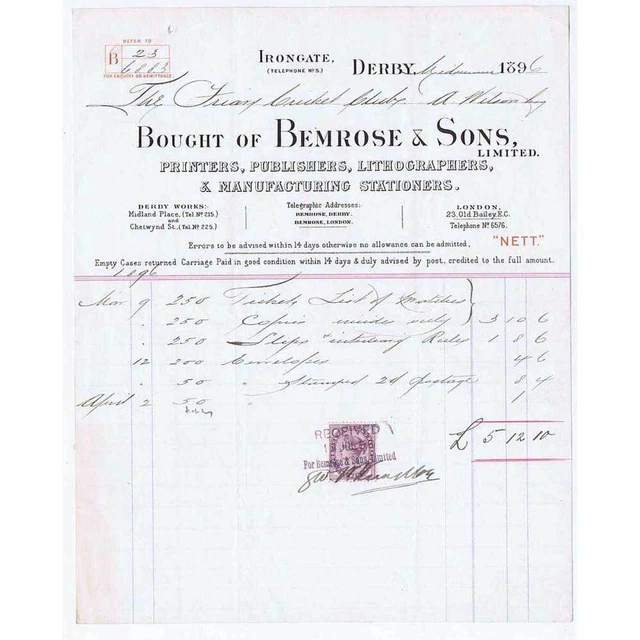 REFER TO
B 23
6883
FOR ENQUIRY OR REMITTANCE.
IRONGATE,
(TELEPHONE Nº 5.)
DERBY, Midsummer 1896
The Friary Cricket Club A Wilson
BOUGHT OF BEMROSE & SONS,
LIMITED.
PRINTERS, PUBLISHERS, LITHOGRAPHERS,
& MANUFACTURING STATIONERS.
DERBY WORKS:
Midland Place, (Tel. Nº 215.)
and
Chetwynd St., (Tel. Nº 225.)
Telegraphic Addresses:-
BEMROSE, DERBY.
BEMROSE, LONDON.
LONDON,
23, Old Bailey, E.C.
Telephone Nº 6576.
Errors to be advised within 14 days otherwise no allowance can be admitted.
"NETT."
Empty Cases returned Carriage Paid in good condition within 14 days & duly advised by post, credited to the full amount.
1896
Mar 9 250 Tickets List of Matches
" 250 Copies inside only 3 10 6
" 250 Slips Rules 1 8 6
12 200 Envelopes 4 6
" 50 " Stamped 2d postage 8 4
April 2 50 " 1
£ 5 12 10
RECEIVED
For Bemrose & Sons, Limited